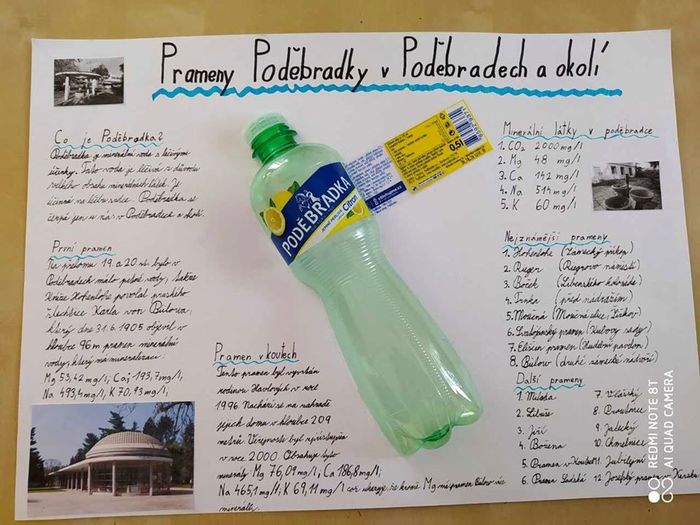 Prameny Poděbradky v Poděbradech a okolí
Co je Poděbradka?
Poděbradka je minerální voda s léčivými
účinky. Tato voda je léčivá z důvodu
velkého obsahu minerálních látek. Je
účinná na léčbu srdce. Poděbradka se
čerpá jen u nás v Poděbradech a okolí.
První pramen
Na přelomu 19. a 20. st. bylo v
Poděbradech málo pitné vody,
kníže Hohenlohe povolal pruského
šlechtice Karla von Bülowa,
který dne 31.6.1905 objevil v
hloubce 96m pramen minerální
vody, který má mineralizaci:
Mg 53,42mg/l, Ca 193,7mg/l,
Na 493,4mg/l, K 70,93 mg/l
PODĚBRADKA
Citron
0,5l
Pramen v koutech
Tento pramen byl vyvrtán
rodinou Havlových v roce
1996. Nachází se na zahradě
jejich domu v hloubce 209
metrů. Veřejnosti byl
v roce 2000. Obsahuje tyto
minerály: Mg 76,09mg/l, Ca 186,8mg/l,
Na 465,1mg/l, K 69,11 mg/l což ukazuje, že kromě Mg má pramen Bülow víc
minerálů.
Minerální látky v poděbradce
1. CO₂ 2000 mg/l
2. Mg 48 mg/l
3. Ca 142 mg/l
4. Na 514 mg/l
5. K 60 mg/l
Nejznámější prameny
1. Hohenlohe (Zámecký příkop)
2. Riegr (Riegrovo náměstí)
3. Boček (Libenského kolonáda)
4. Trnka (před nádražím)
5. Močičná (Močičná ulic, Žižkov)
6. pramen (Kubovy sady)
7. Eliščin pramen (Hudební pavilon)
8. Bülow (druhé zámecké nádvoří)
Další prameny
1. Mílada
2. Libuše
3. Jiří
4. Božena
5. Pramen v Koutech
6. Prama Sadská
7. Vlčárský
8.
9. Jalecký
10. Chmelnice
11. Jubilejní
12. Josefský pramen v Kersku
REDMI NOTE 8T
AI QUAD CAMERA